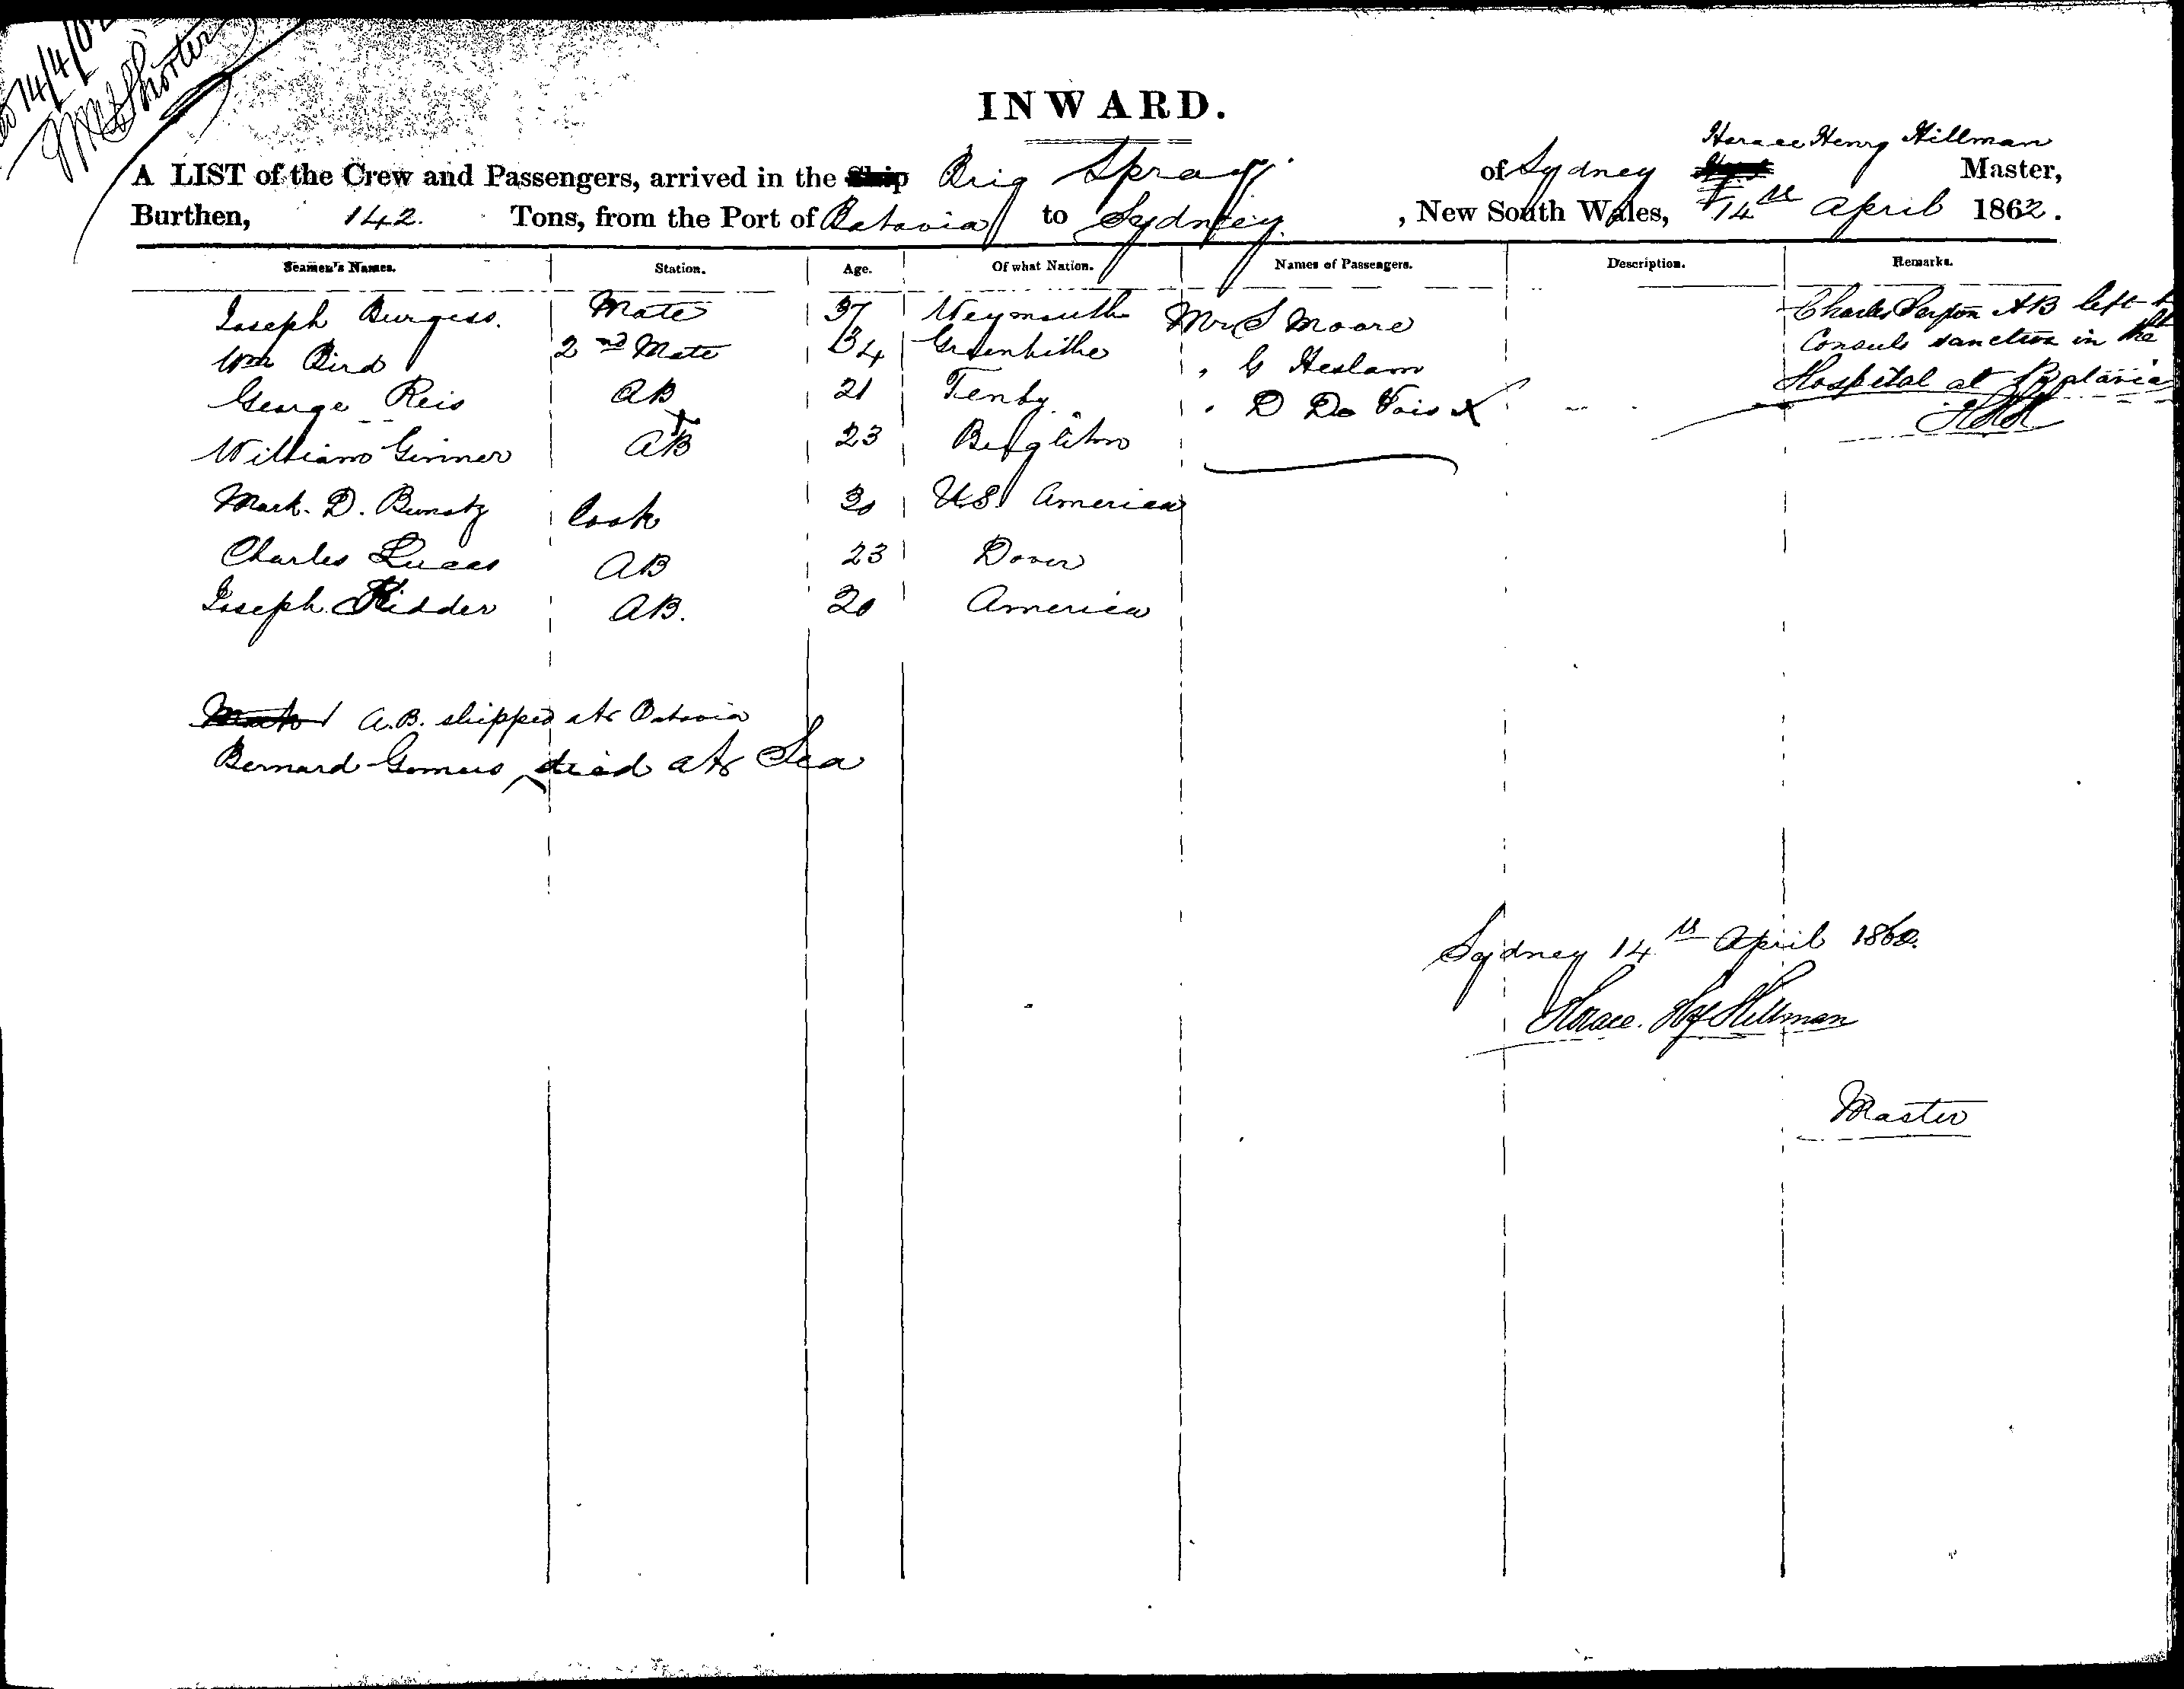 14/4/62
INWARD.
Horace Henry Hillman
A LIST of the Crew and Passengers, arrived in the Ship Brig Spray of Sydney Master,
Burthen, 142. Tons, from the Port of Batavia to Sydney. , New South Wales, 14th April 1862.
Seamen's Names. Station. Age. Of what Nation. Names of Passengers. Description. Remarks.
Joseph Burgess. Mate 37 Weymouth Mr S Moore Charles AB left
Wm Bird 2nd Mate 34 Greenhithe " G Heslam Consuls sanction in the
George Reis AB 21 Tenby " D De Vois X Hospital at Batavia
William Ginner AB 23 HHH
Mark. D. Cook 30 U.S. America
Charles Lucas AB 23 Dover
Joseph Kidder AB. 20 America
A.B. shipped at Batavia
Bernard died at Sea
Sydney 14th April 1862.
Horace. Hy Hillman
Master